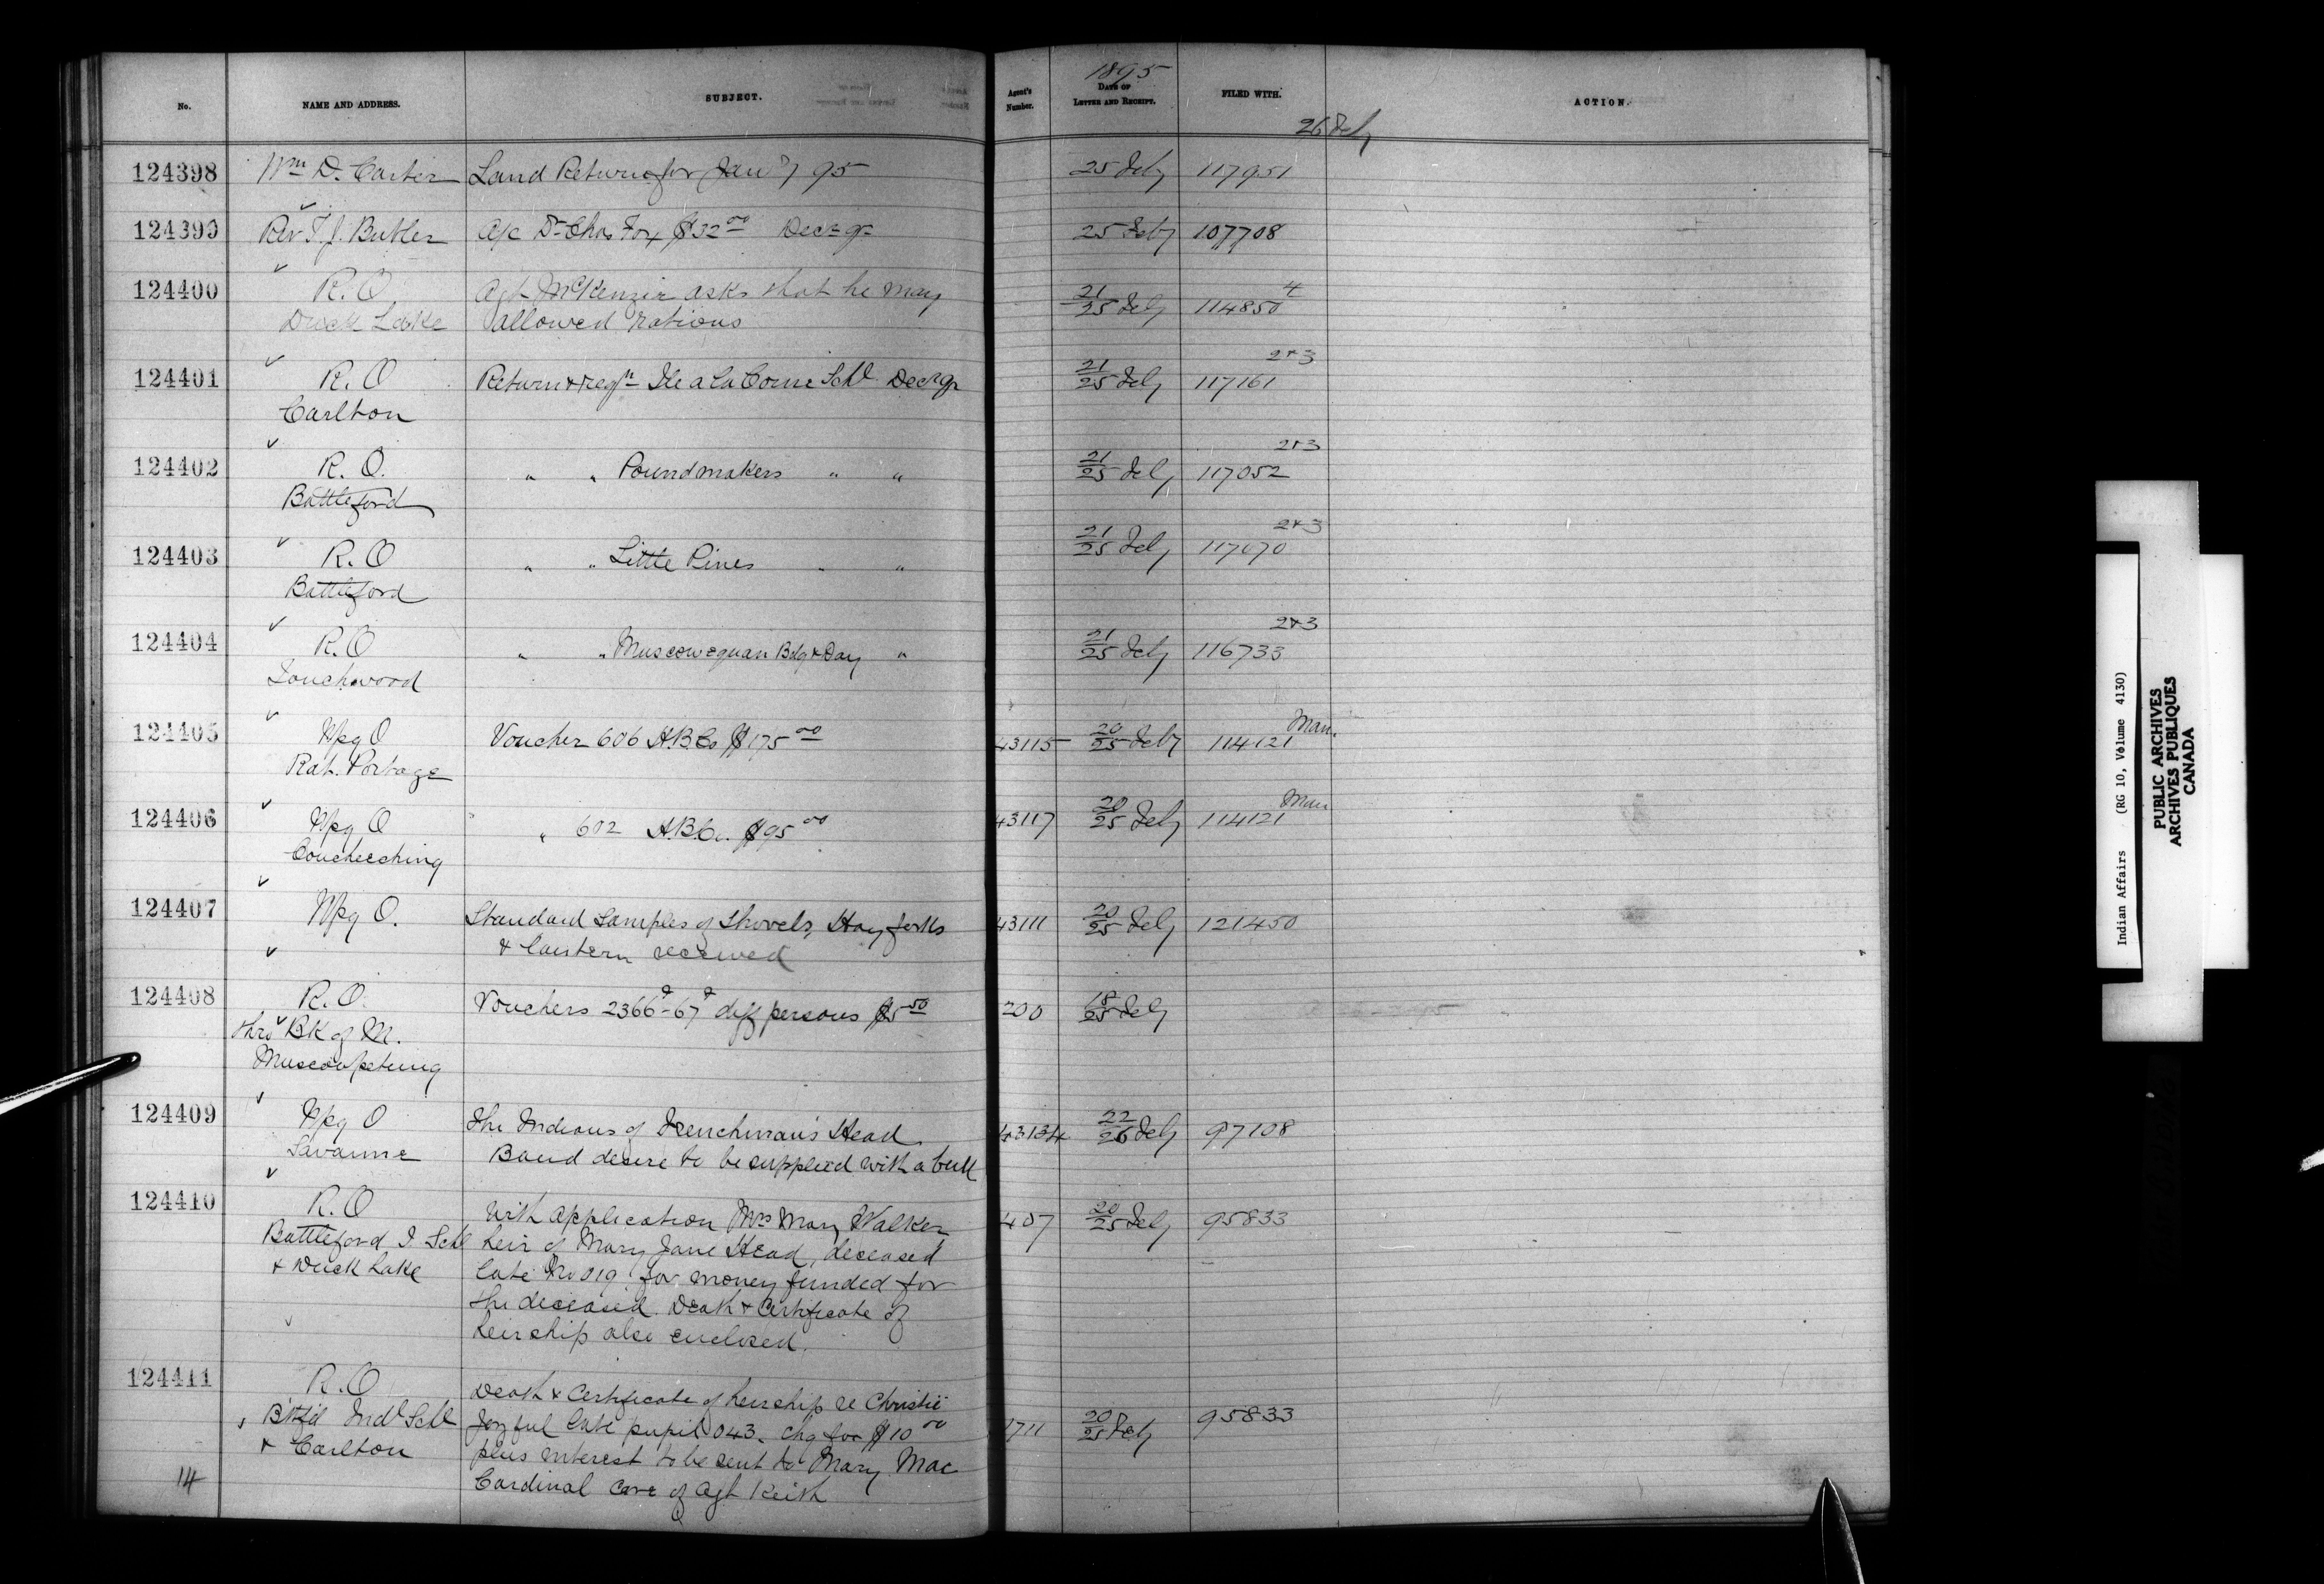 1895
No. NAME AND ADDRESS. SUBJECT. Agent's Number. DATE OF LETTER AND RECEIPT. FILED WITH. ACTION.
26 Feby
124398 Wm D. Carter Land Return for Jany 95 25 Feby 117951
124399 Rev T. J. Butler A/c Dr Chas Fox $32 00 Decr qr 25 Feby 107708
124400 R. O Agt McKenzie asks that he may 21/25 Feby 114850 4
Duck Lake allowed rations
124401 R. O Return & reqn Ile a La Corne Schl Decr qr 21/25 Feby 117161 2+3
Carlton
124402 R. O. " " Poundmakers " " 21/25 Feby 117052 2+3
Battleford
124403 R. O " " Little Pines " " 21/25 Feby 117070 2+3
Battleford
124404 R. O " " Muscowequan Bdg & Day " 21/25 Feby 116733 2+3
Touchwood
124405 Wpg O Voucher 606 H.B.Co $175 00 43115 20/25 Feby 114121 Man.
Rat. Portage
124406 Wpg O " 602 H.B.Co. $95 00 43117 20/25 Feby 114121 Man
Coucheeching
124407 Wpg O. Standard Samples of Shovels, Hay forks 43111 20/25 Feby 121450
& Lantern received
124408 R. O. Vouchers 2366a-67a diff persons $5 50 200 18/25 Feby
thro' BK of M.
Muscowpetung
124409 Wpg O The Indians of Frenchman's Head 43134 22/26 Feby 97108
Savanne Band desire to be supplied with a bull
124410 R. O With application Mrs Mary Walker 407 20/25 Feby 95833
Battleford I Schl heir of Mary Jane Head, deceased
& Duck Lake late No 019 for money funded for
the deceased. Death & Certificate of
heirship also enclosed.
124411 R. O Death & Certificate of heirship re Christie 1711 20/25 Feby 95833
B'tfd Indl Schl Joyful late pupil 043. Chq for $10 00
& Carlton plus interest to be sent to Mary Mac
Cardinal care of Agt Keith
14
Indian Affairs (RG 10, Volume 4130)
PUBLIC ARCHIVES
ARCHIVES PUBLIQUES
CANADA